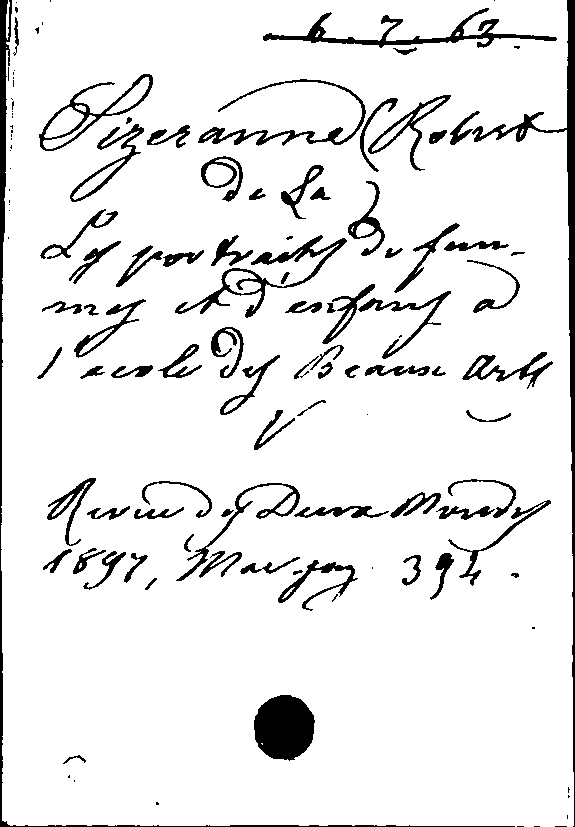 6.7.63.
Sizeranne (Robert
de La)
Les portraits de fem-
mes et d'enfans a
l'ecole des Beaux Arts
Revue des Deux Mondes
1897, Mai-
394.